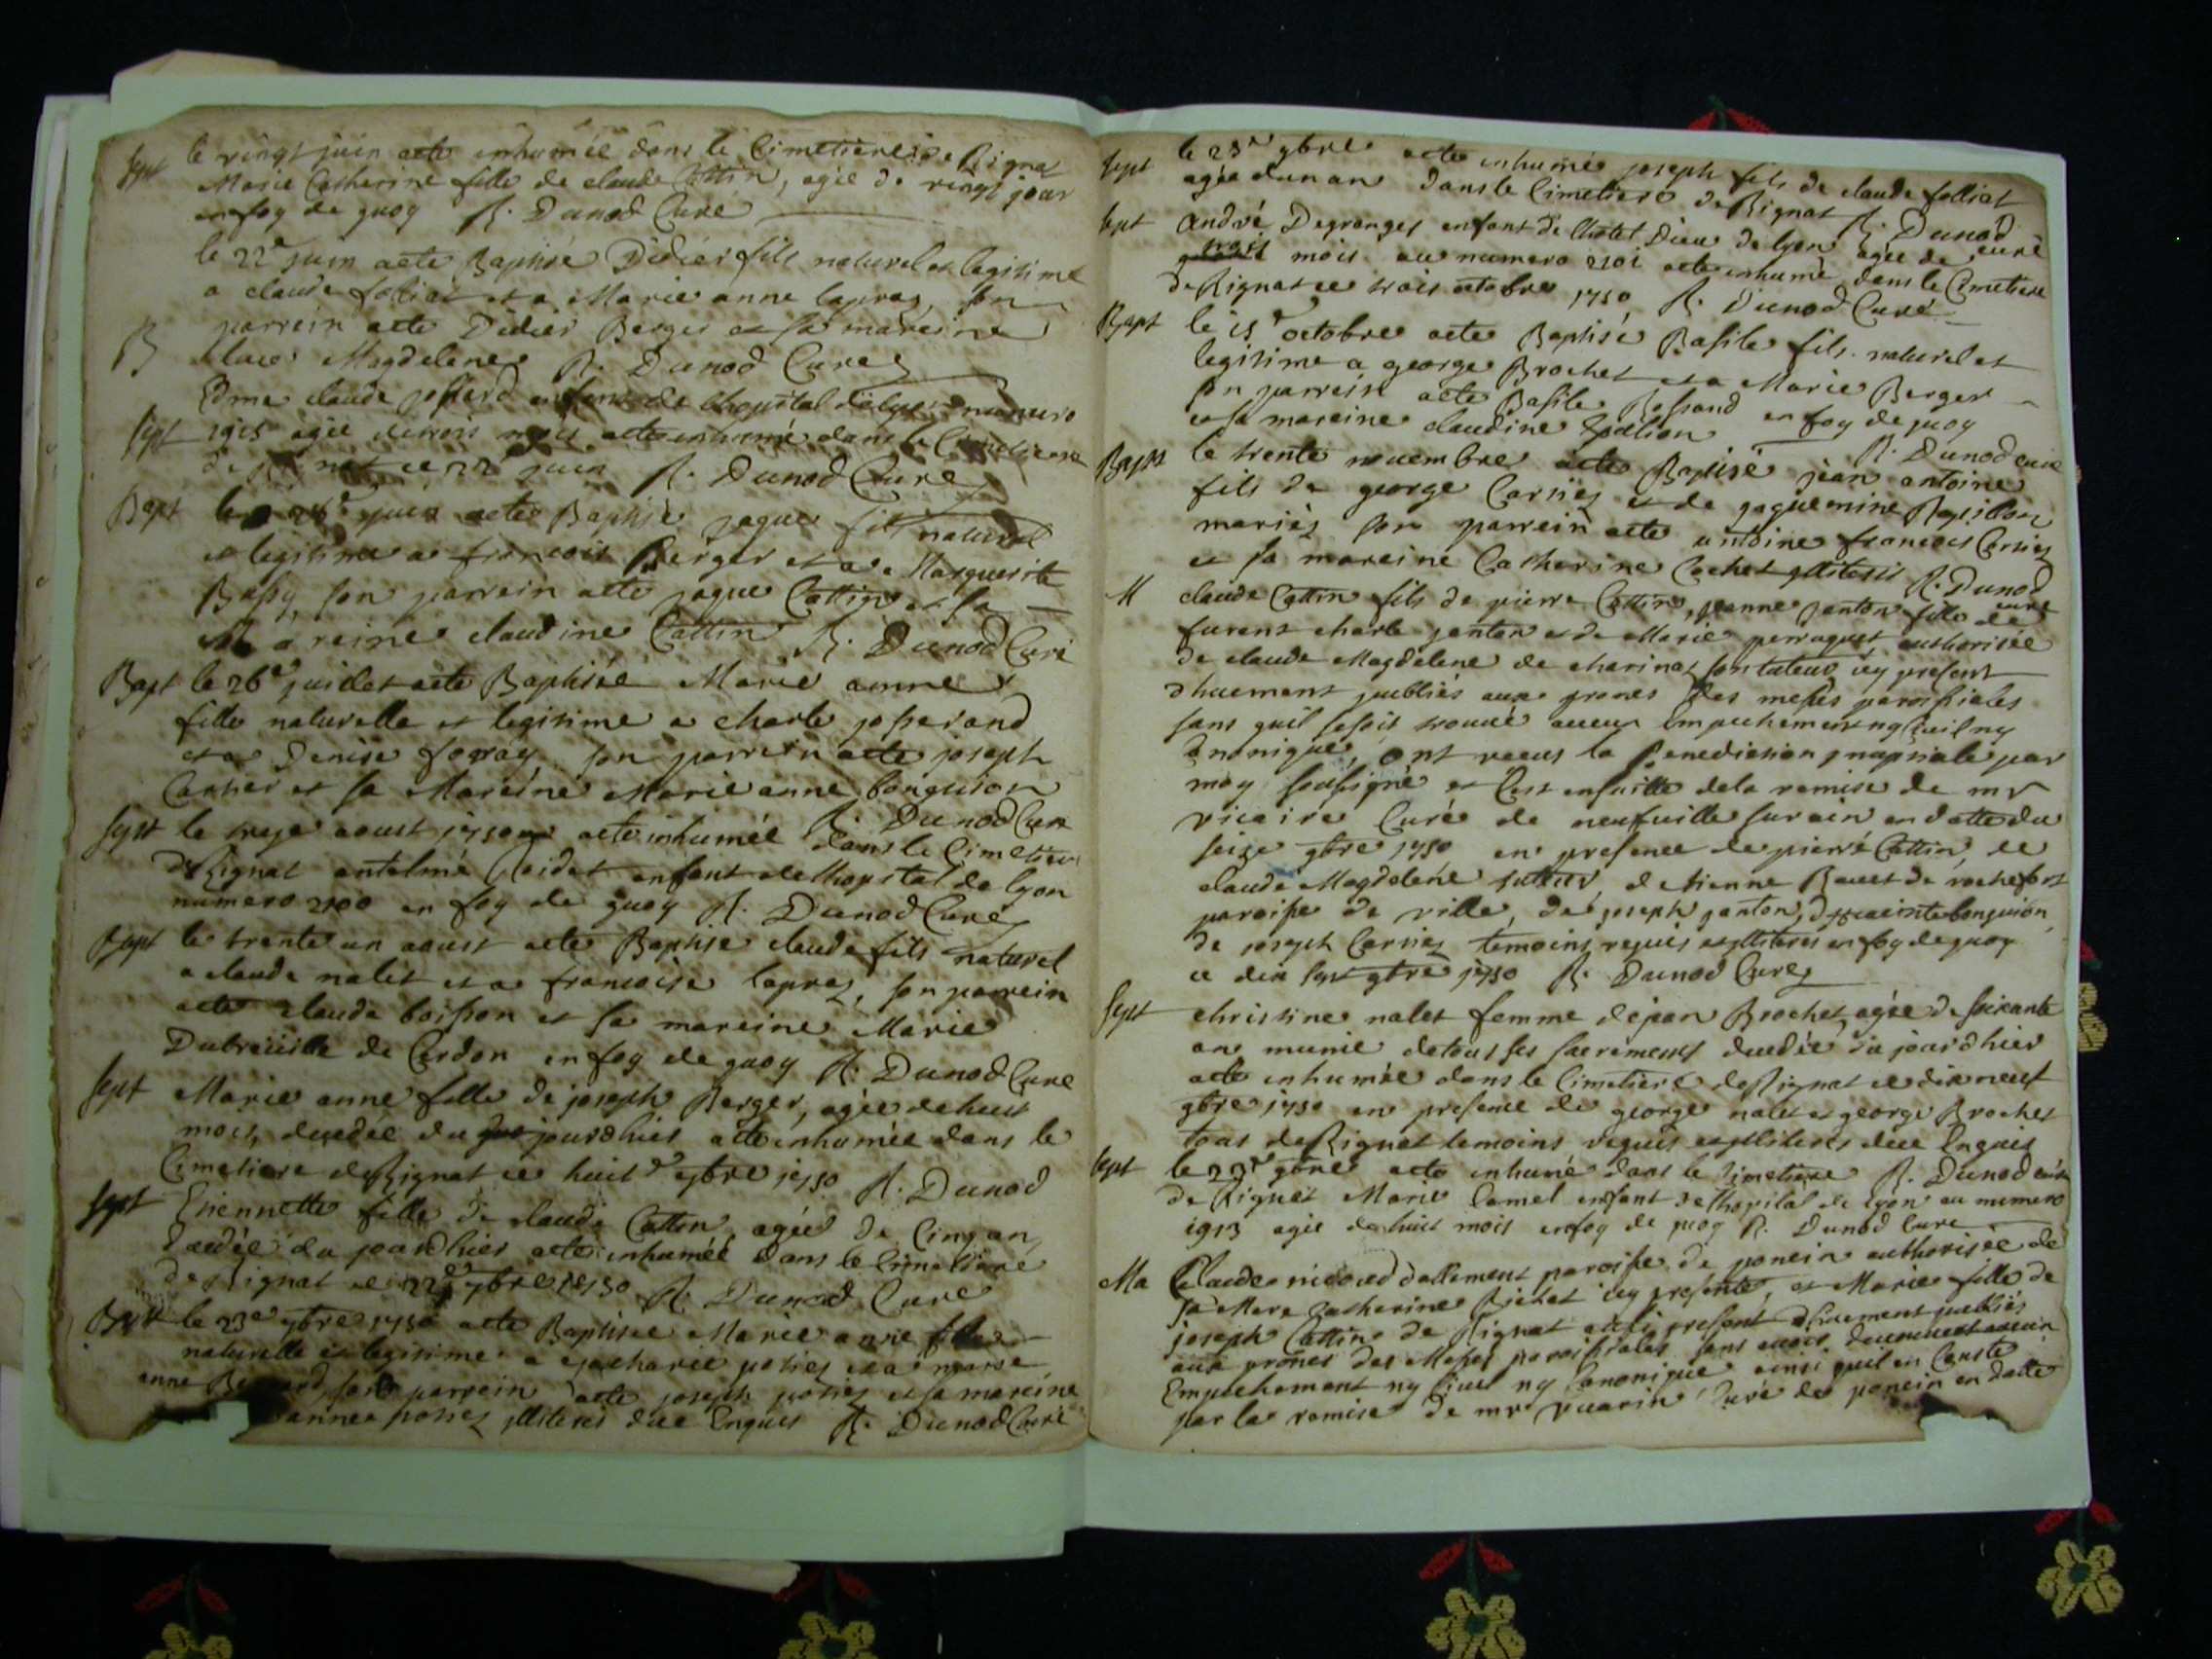 Sept le vingt juin a ete inhumée dans le Cimetiere de Rignat
Marie Catherine fille de claude Cottin, agée de vingt jour
en foy de quoy R. Dunod Curé
le 22e juin a ete Baptisé Didier fils naturel et legitime
a claude folliat et a Marie anne lapraz, son
parrein a ete Didier Berger et sa mareine
B Magdelene R. Dunod Curé
claude enfant de lhopital de lyon numero
Sept 1915 agée de trois mois a ete inhumé dans le Cimetiere
de Rignat ce 22e juin R. Dunod Curé
Bapt le juin a ete Baptisé jaque fils naturel
et legitime a francois Berger et a Marguerite
Bassy, son parrein a ete jaque Cottin et sa
Mareine claudine Cottin R. Dunod Curé
Bapt le 26e juillet a ete Baptisée Marie anne
fille naturelle et legitime a charle josserand
et a Denise son parrein a ete joseph
Carrier et sa Mareine Marie anne bonguison
R. Dunod Curé
Sept le treze aoust 1750 a ete inhumée dans le Cimetiere
de Rignat antelme enfant de lhopital de lyon
numero 2100 en foy de quoy R. Dunod Curé
Bapt le trente un aoust a ete Baptisé claude fils naturel
a claude nalet et a francoise lapraz, son parrein
a ete claude boisson et sa mareine Marie
Dubreüille de Cerdon en foy de quoy R. Dunod Curé
Sept Marie anne fille de joseph Berger, agée de huit
mois, decedée du jourdhier a ete inhumée dans le
Cimetiere de Rignat ce huit 7bre 1750 R. Dunod
Sept Etiennette fille de claude Cottin, agée de Cinq an,
decedée du jourdhier a ete inhumée dans le Cimetiere
de Rignat ce 22e 7bre 1750 R. Dunod Curé
Bapt le 23e 7bre 1750 a ete Baptisée Marie anne fille
naturelle et legitime a zacharie et a marie
anne son parrein a ete joseph et sa mareine
anne illiteres duë Enquis R. Dunod Curé
Sept le 23e 7bre a ete inhumé joseph fils de claude folliat
agée dun an dans le Cimetiere de Rignat R. Dunod
curé
Sept andré Degranges enfant de lhotel Dieu de lyon agée de
trois mois au numero 2101 a ete inhumé dans le Cimetiere
de Rignat ce trois octobre 1750 R. Dunod Curé
Bapt le 15e octobre a ete Baptisé Basile fils naturel et
legitime a george Brochet et a Marie Berger
son parrein a ete Basile Bossand en foy de quoy
et sa mareine claudine
R. Dunod curé
Bapt le trente nouembre a ete Baptisé jean antoine
fils de george Carriez et de jaquemine
mariés son parrein a ete antoine francois Carriez
et sa mareine Catherine Cochet illiteres R. Dunod
curé
M claude Cottin fils de pierre Cottin, jeanne janton fille de
furent charle janton et de Marie perraquet authorisée
de claude Magdelene de charinas son tuteur icy present
dhuement publiés aux prones des messes paroissiales
sans quil se soit trouué aucun Empechement ny Ciuil ny
Canonique, ont receus la Benediction nuptiale par
moy sousigné et C'est ensuitte de la remise de mr
vicaire Curé de neufuille sur ain en datte du
seize 9bre 1750 en presence de pierre Cottin, de
claude Magdelene tuteur, detienne Bauet de rochefort
paroisse de ville, de joseph janton, bonguison,
de joseph Carriez temoins requis et illiteres en foy de quoy
ce dix sept 9bre 1750 R. Dunod Curé
Sept christine nalet femme de jean Brochet agée de soixante
an munie de tous ses sacremens decedée du jourdhier
a ete inhumée dans le Cimetiere de Rignat ce dix neuf
9bre 1750 en presence de george nalet et george Brochet
tous de Rignat temoins requis et illiteres duë Enquis
Sept le 9bre a ete inhumé dans le Cimetiere R. Dunod curé
de Rignat Marie Camel enfant de lhopital de lyon au numero
1913 agée de huit mois en foy de quoy R. Dunod Curé
Ma Claude dallement paroisse de poncin authorisée de
sa Mere Catherine Richet icy presente, et Marie fille de
joseph Cottin de Rignat aussi present dhuement publiés
aux prones des Messes paroissiales sans auoir decouuert aucun
Empechement ny Ciuil ny Canonique ainsi quil en Conste
par la remise de mr vuarin Curé de poncin en datte